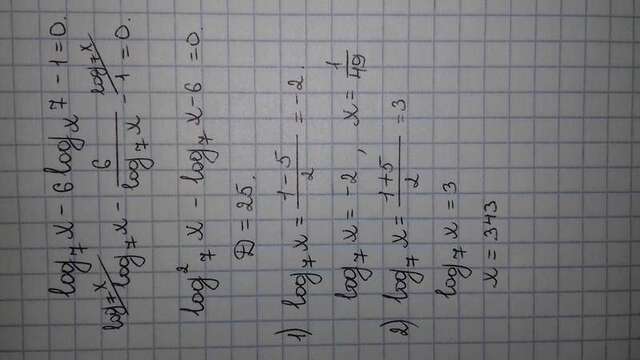 log₇x - 6 logₓ7 - 1 = 0.
log₇x log₇x
log₇x - 6/log₇x - 1 = 0.
log₇²x - log₇x - 6 = 0.
D = 25.
1) log₇x = (1-5)/2 = -2.
log₇x = -2, x = 1/49
2) log₇x = (1+5)/2 = 3
log₇x = 3
x = 343